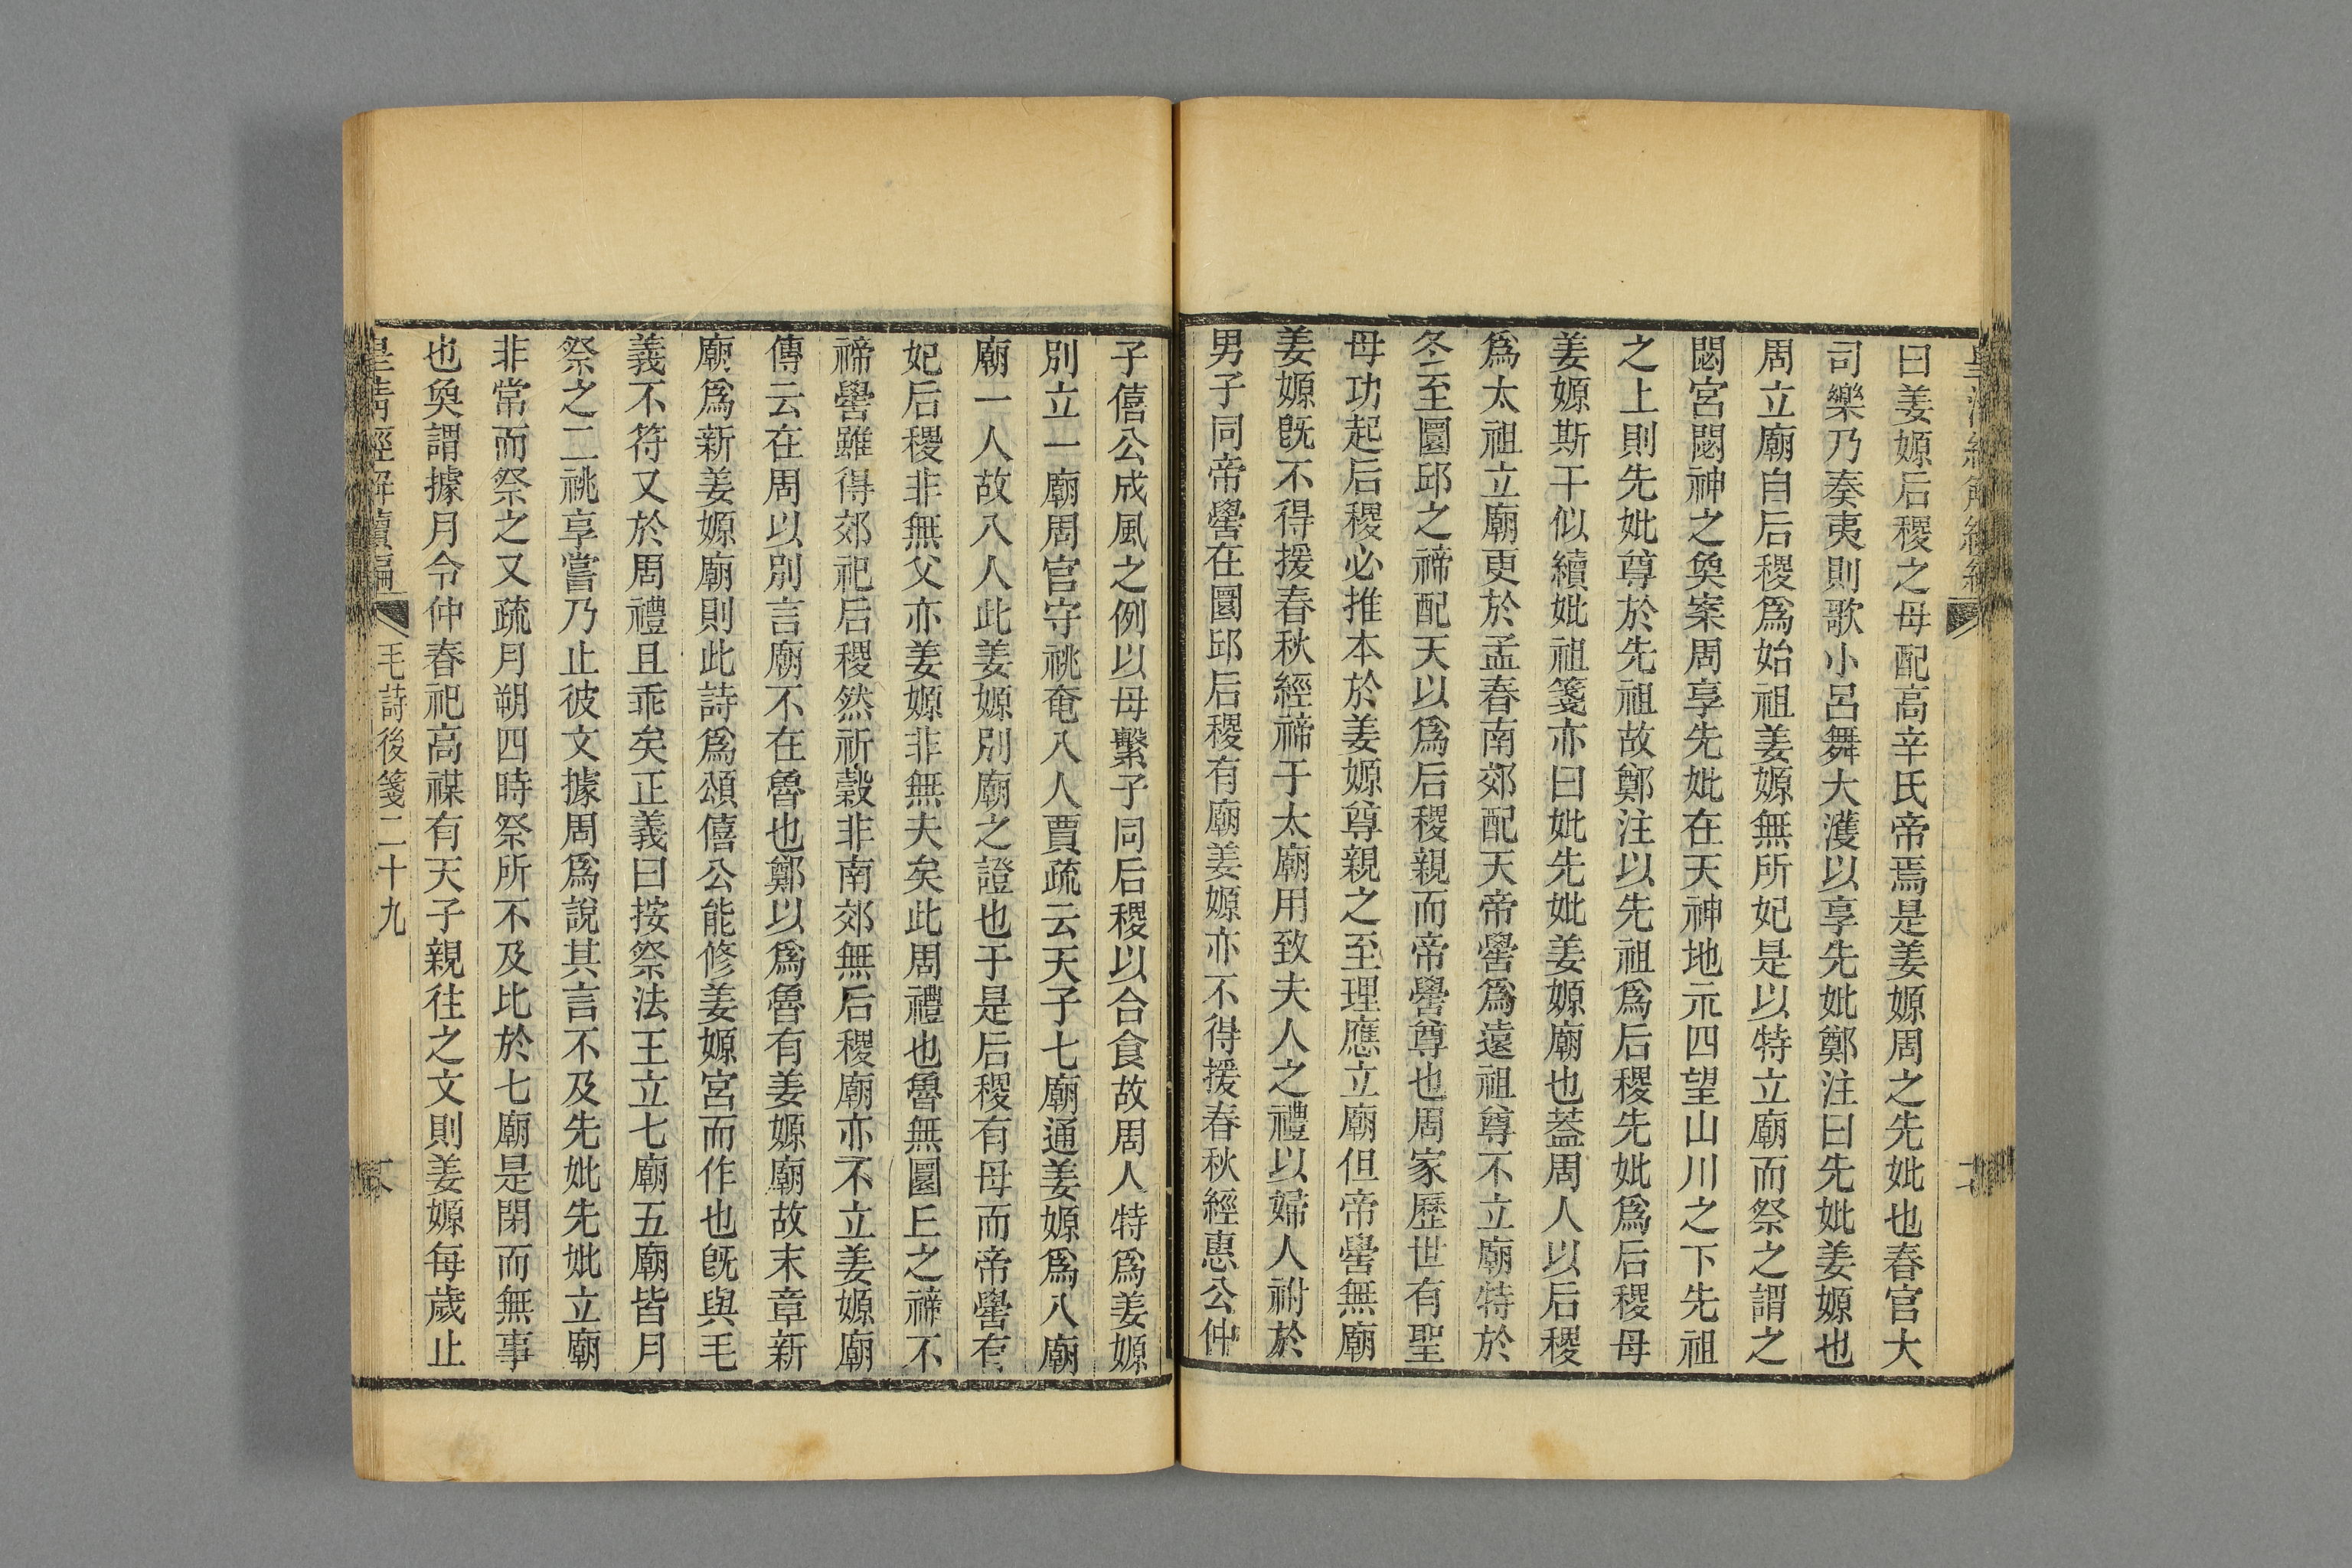 曰姜嫄后稷之母配高辛氏帝焉是姜嫄周之先妣也春官大
司樂乃奏夷則歌小呂舞大濩以享先妣鄭注曰先妣姜嫄也
周立廟自后稷爲始祖姜嫄無所妃是以特立廟而祭之謂之
閟宮閟神之奐案周享先妣在天神地示四望山川之下先祖
之上則先妣尊於先祖故鄭注以先祖爲后稷先妣爲后稷母
姜嫄斯干似續妣祖箋亦曰妣先妣姜嫄廟也蓋周人以后稷
爲太祖立廟更於孟春南郊配天帝嚳爲遠祖尊不立廟特於
冬至圜邱之禘配天以爲后稷親而帝嚳尊也周家歷世有聖
母功起后稷必推本於姜嫄尊親之至理應立廟但帝嚳無廟
姜嫄旣不得援春秋經禘于太廟用致夫人之禮以婦人祔於
男子同帝嚳在圜邱后稷有廟姜嫄亦不得援春秋經惠公仲
子僖公成風之例以母繫子同后稷以合食故周人特爲姜嫄
別立一廟周官守祧奄八人賈疏云天子七廟通姜嫄爲八廟
廟一人故八人此姜嫄別廟之證也于是后稷有母而帝嚳有
妃后稷非無父亦姜嫄非無夫矣此周禮也魯無圜丘之禘不
禘嚳雖得郊祀后稷然祈穀非南郊無后稷廟亦不立姜嫄廟
傳云在周以別言廟不在魯也鄭以爲魯有姜嫄廟故末章新
廟爲新姜嫄廟則此詩爲頌僖公能修姜嫄宮而作也旣與毛
義不符又於周禮且乖矣正義曰按祭法王立七廟五廟皆月
祭之二祧享嘗乃止彼文據周爲說其言不及先妣先妣立廟
非常而祭之又疏月朔四時祭所不及比於七廟是閉而無事
也奐謂據月令仲春祀高禖有天子親往之文則姜嫄每歲止
皇清經解續編 毛詩後箋二十九